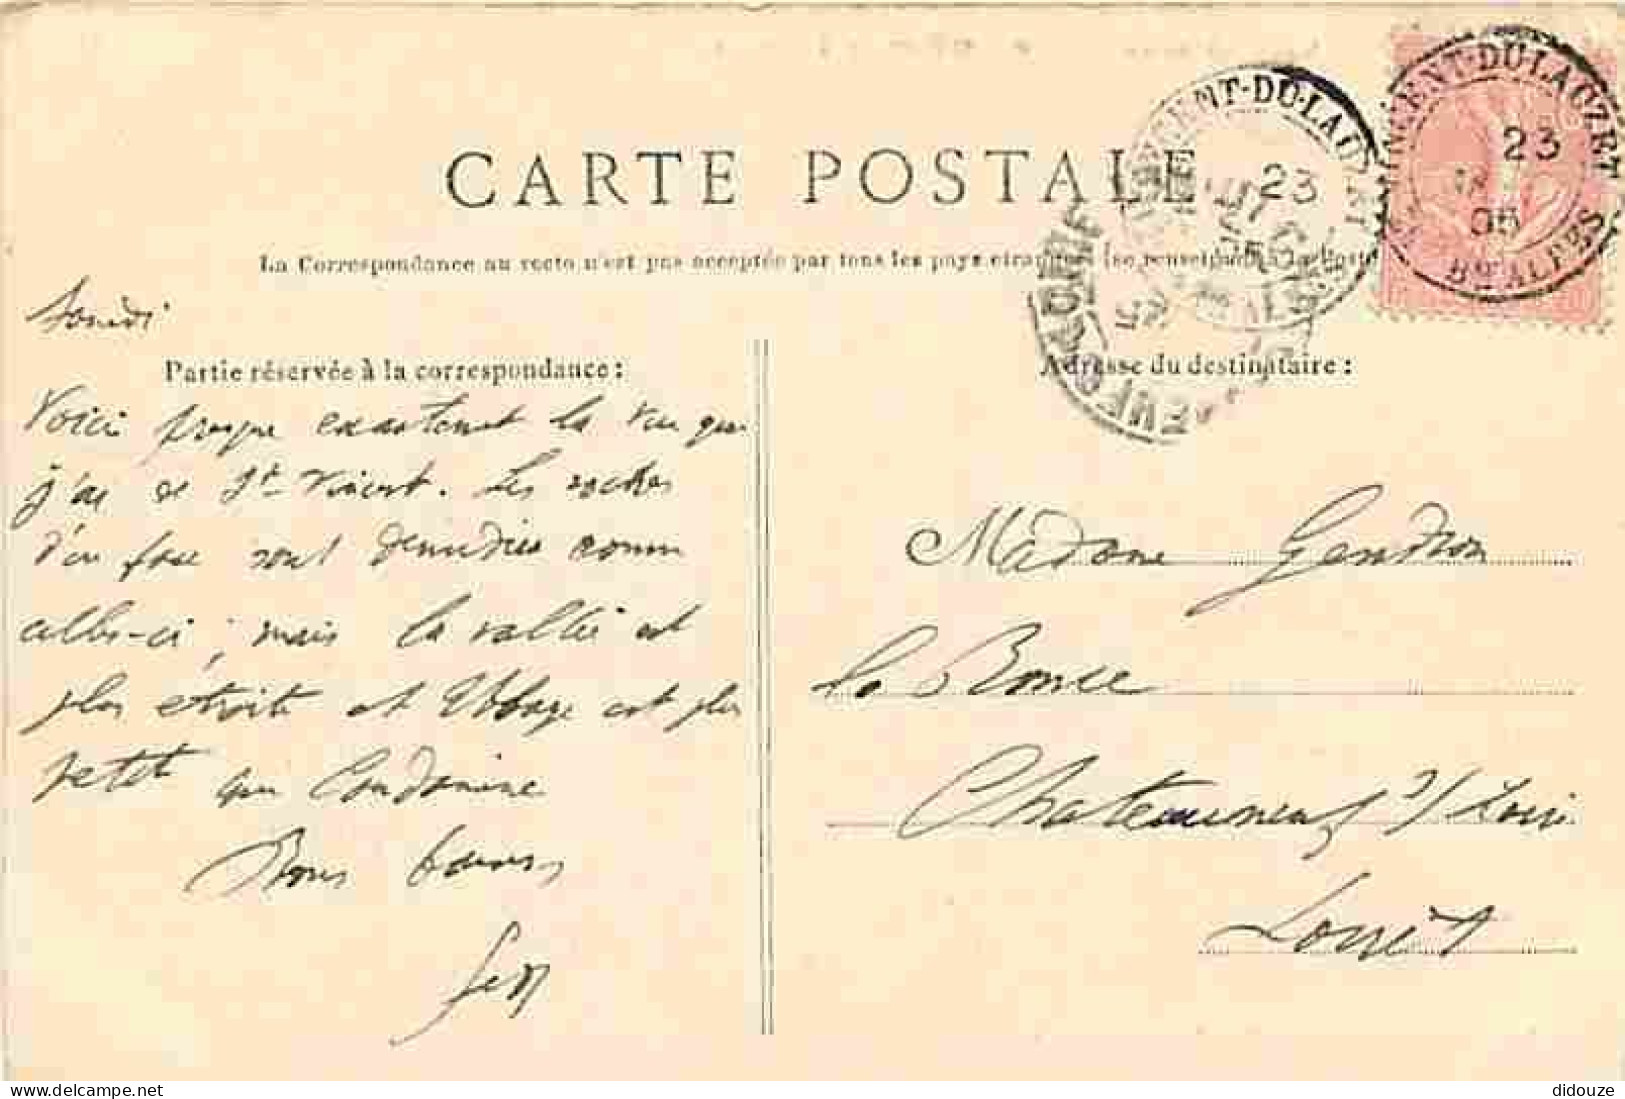 CARTE POSTALE
La Correspondance au recto n'est pas acceptée par tous les pays étrangers (se renseigner à la Poste
VINCENT-DU-LAUZET
23
05
BSES ALPES
ENT-DU-LAUZET
23
CHATEAUNEUF
Partie réservée à la correspondance :
Adresse du destinataire :
Voici presque exactement la vue que
j'ai de St-Vincent. Les roches
d'en face sont dénudées comme
celles-ci, mais la vallée est
plus étroite et l'Ubaye est plus
petit que
Bons baisers
Madame Gendron
La Ronce
Chateauneuf s/ Loire
Loiret
didouze